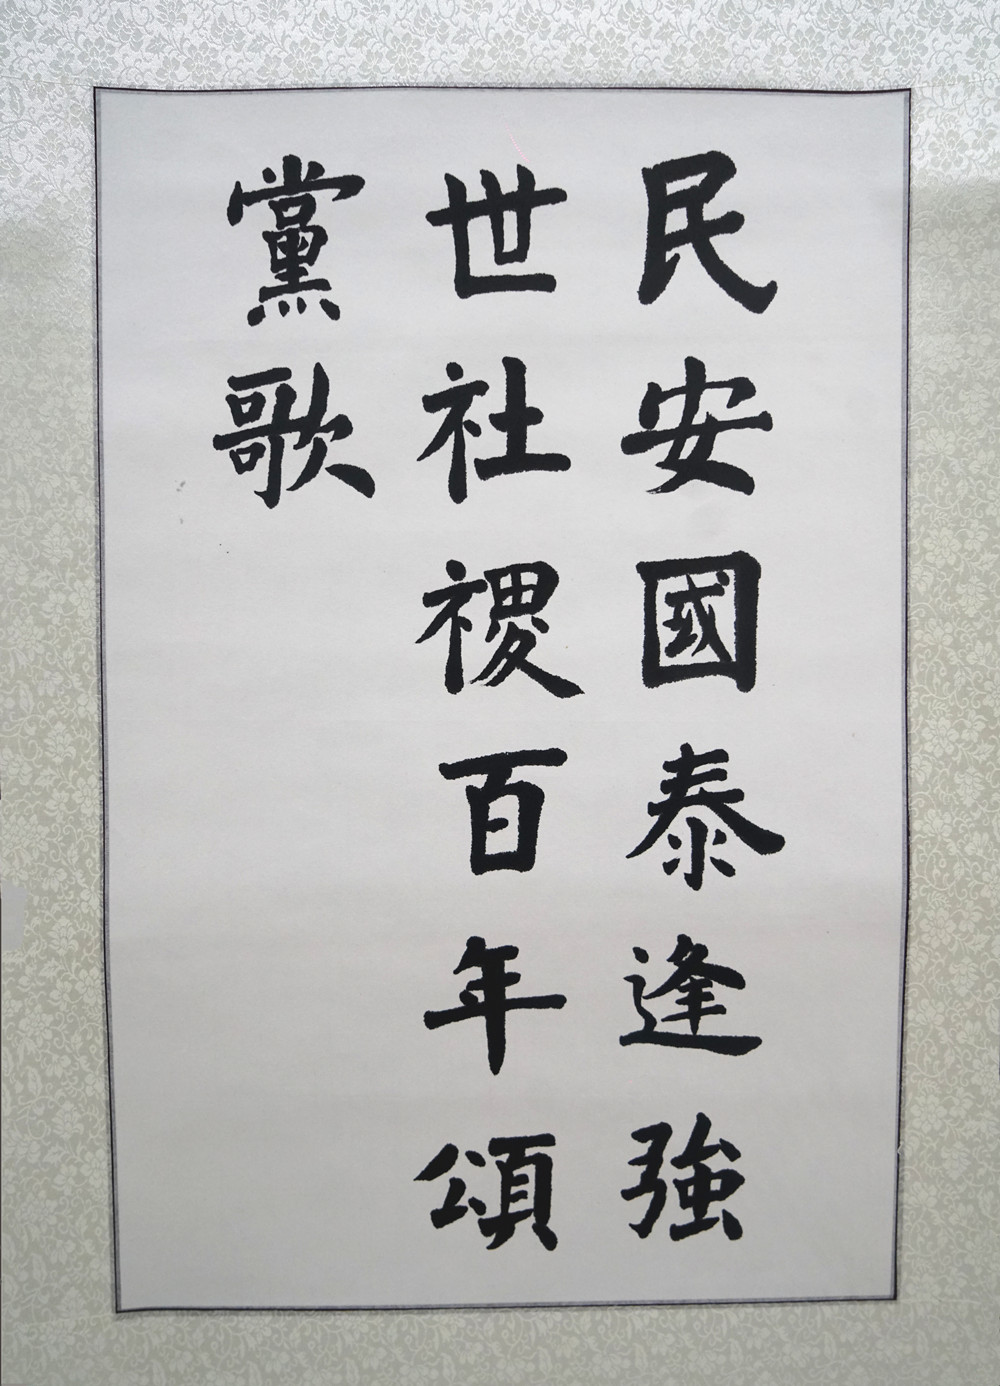 民安國泰逢強
世社禝百年頌
黨歌